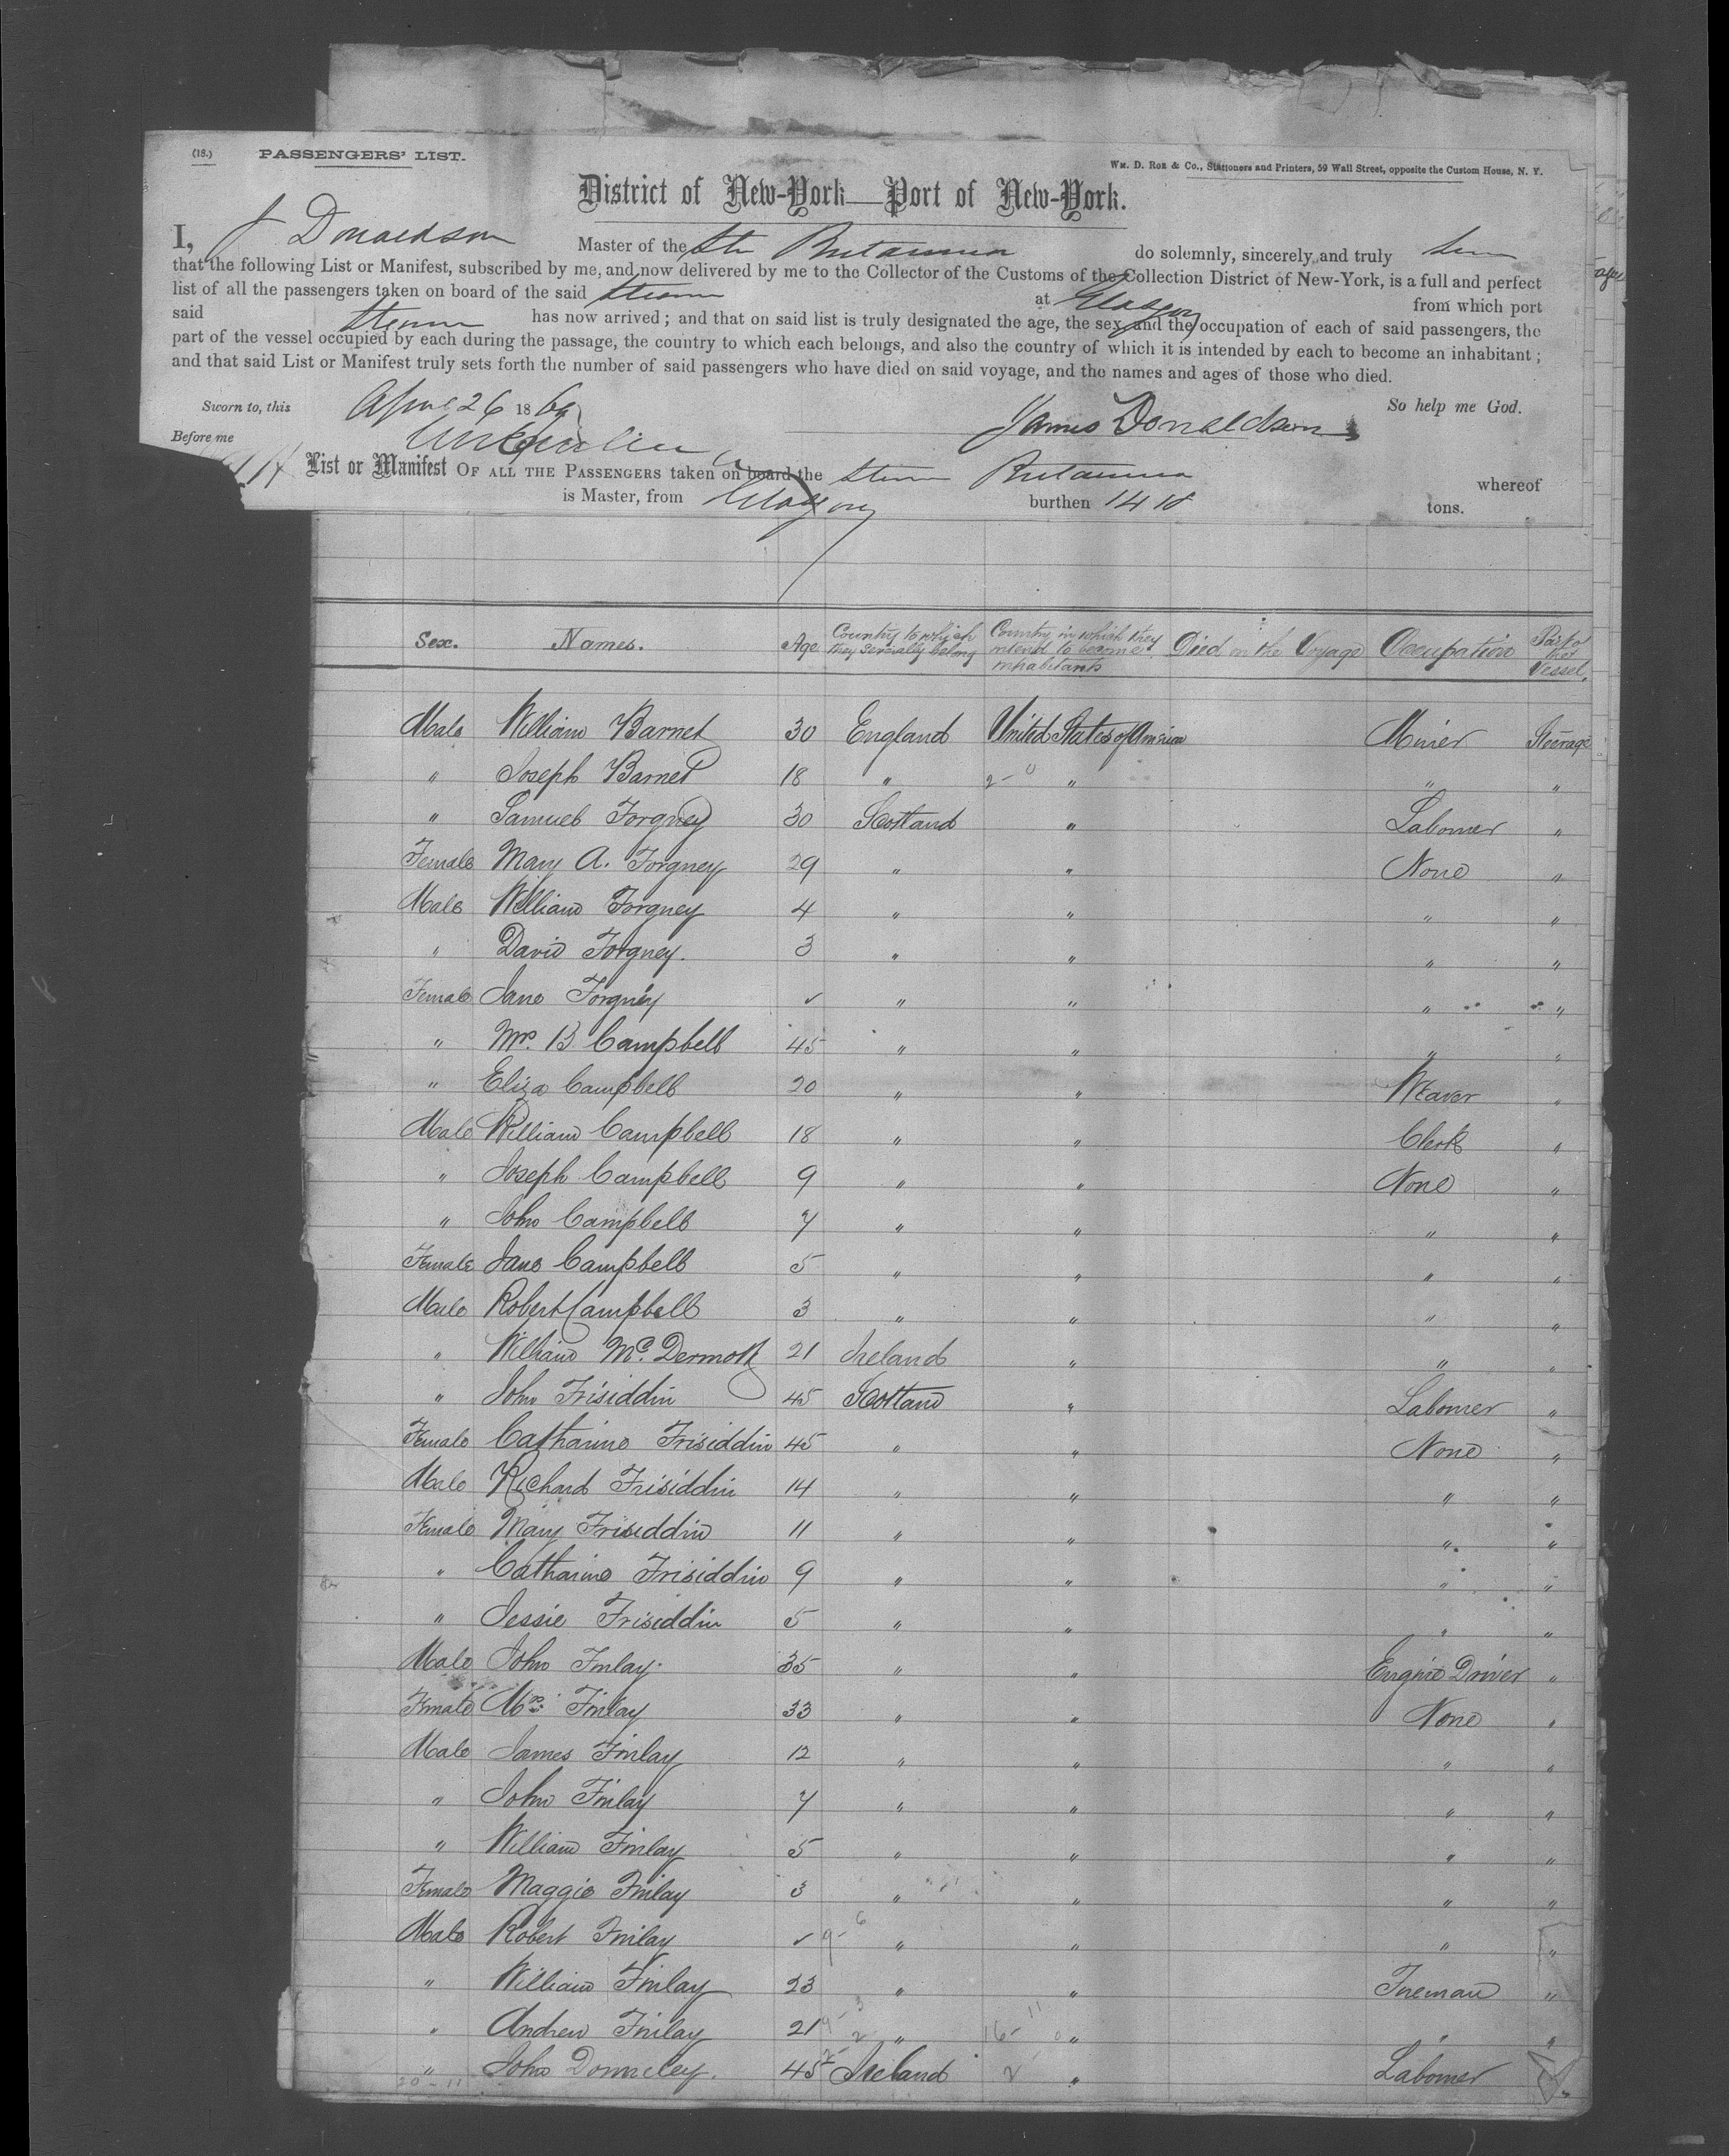 (18.) PASSENGERS' LIST.
Wm. D. Roe & Co., Stationers and Printers, 59 Wall Street, opposite the Custom House, N. Y.
District of New-York—Port of New-York.
I, J Donaldson Master of the Str Britannia do solemnly, sincerely and truly
that the following List or Manifest, subscribed by me, and now delivered by me to the Collector of the Customs of the Collection District of New-York, is a full and perfect
list of all the passengers taken on board of the said Steamer at Glasgow from which port
said Steamer has now arrived; and that on said list is truly designated the age, the sex, and the occupation of each of said passengers, the
part of the vessel occupied by each during the passage, the country to which each belongs, and also the country of which it is intended by each to become an inhabitant;
and that said List or Manifest truly sets forth the number of said passengers who have died on said voyage, and the names and ages of those who died.
Sworn to, this April 26 1869 So help me God.
Before me James Donaldson
List or Manifest OF ALL THE PASSENGERS taken on board the Steamer Britannia whereof
is Master, from Glasgow burthen 1418 tons.
Sex. Names. Age Country to which they severally belong Country in which they intend to become inhabitants Died on the Voyage Occupation Part of the Vessel.
Male William Barnet 30 England United States of America Miner Steerage
" Joseph Barnet 18 " " " "
" Samuel Forgney 30 Scotland " Labourer "
Female Mary A. Forgney 29 " " None "
Male William Forgney 4 " " " "
" David Forgney. 3 " " " "
Female Jane Forgney ✓ " " " "
" Mrs. B Campbell 45 " " " "
" Eliza Campbell 20 " " Weaver "
Male William Campbell 18 " " Clerk "
" Joseph Campbell 9 " " None "
" John Campbell 7 " " " "
Female Jane Campbell 5 " " " "
Male Robert Campbell 3 " " " "
" William McDermott 21 Ireland " " "
" John Frisiddin 45 Scotland " Labourer "
Female Catharine Frisiddin 45 " " None "
Male Richard Frisiddin 14 " " " "
Female Mary Frisiddin 11 " " " "
" Catharine Frisiddin 9 " " " "
" Jessie Frisiddin 5 " " " "
Male John Finlay 35 " " Engine Driver "
Female Mrs. Finlay 33 " " None "
Male James Finlay 12 " " " "
" John Finlay 7 " " " "
" William Finlay 5 " " " "
Female Maggie Finlay 3 " " " "
Male Robert Finlay ✓ " " " "
" William Finlay 23 " " Fireman "
" Andrew Finlay 21 " " " "
" John Donneley. 45 Ireland " Labourer "